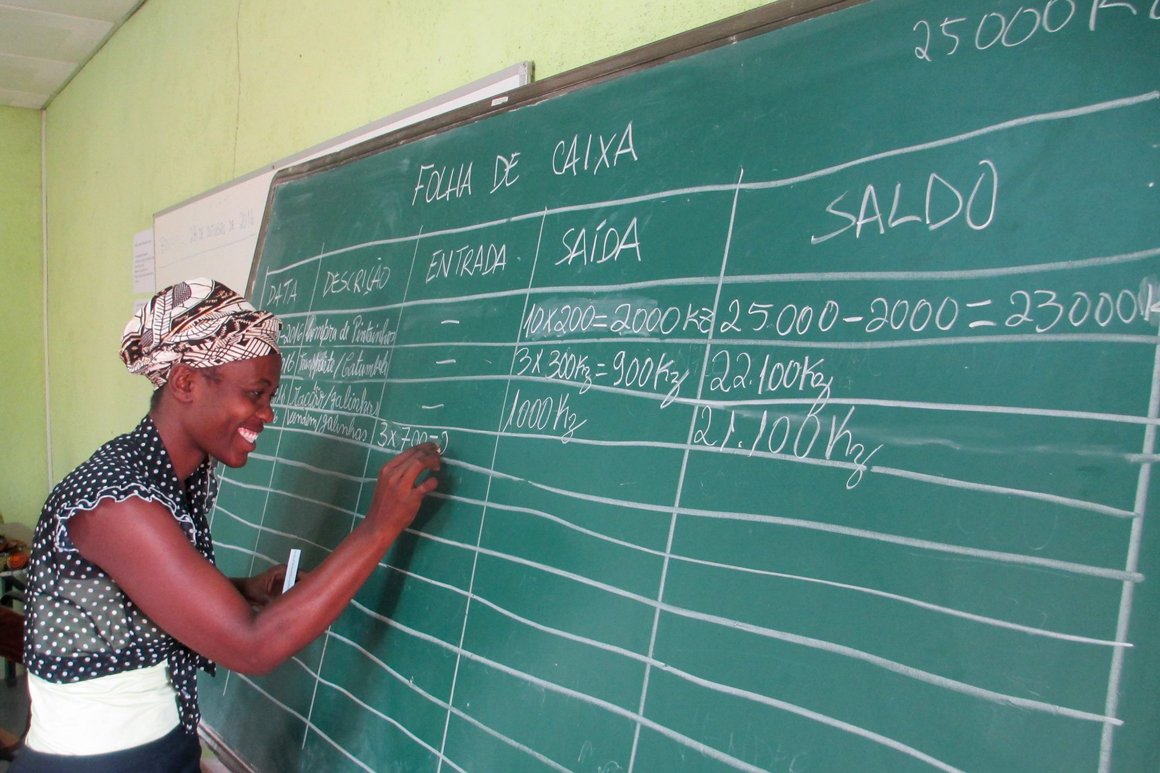 25000Kz
FOLHA DE CAIXA
DATA DESCRIÇÃO ENTRADA SAÍDA SALDO
-2016 Compra de Pintainhos — 10x200=2000Kz 25.000-2000=23000K
16 / — 3x300Kz=900Kz 22.100Kz
Ração/galinhas — 1000Kz 21.100Kz
galinhas 3x700=2
DE 2016